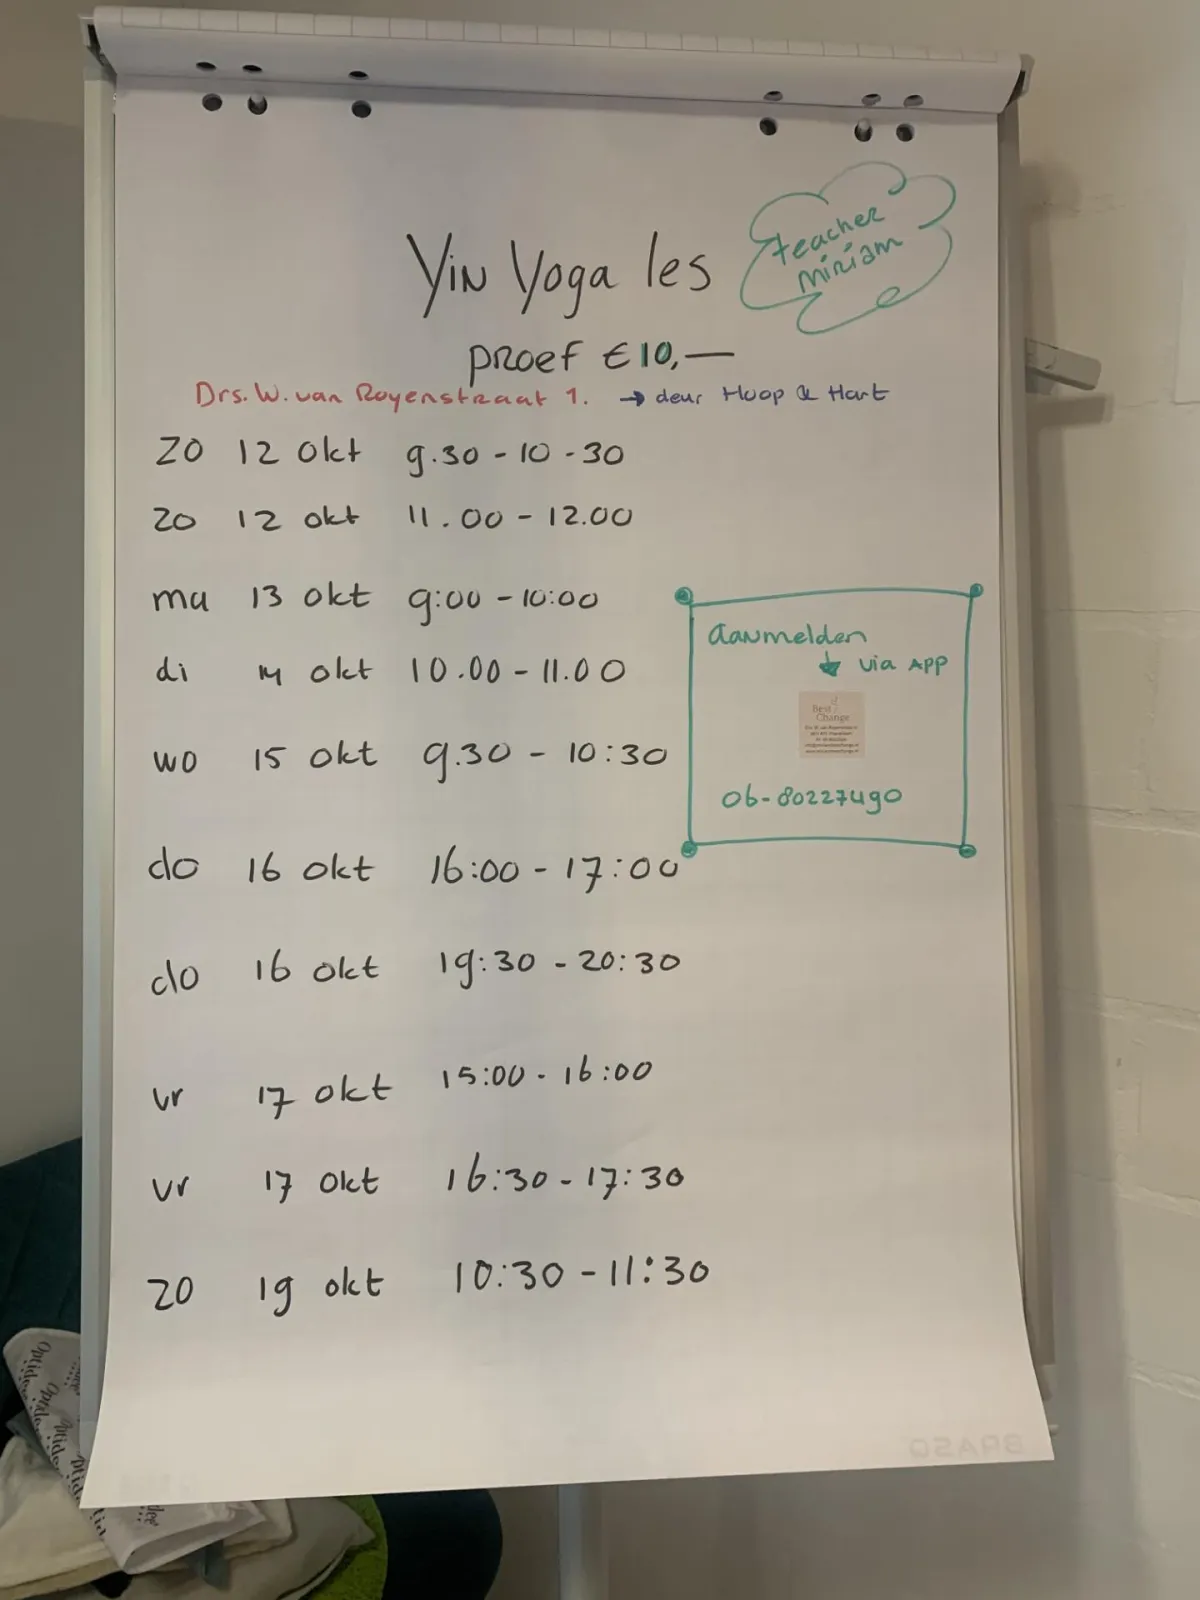 Yin Yoga les
teacher
miriam
proef €10,—
Drs. W. van Royenstraat 1. → deur Hoop & Hart
ZO 12 okt 9.30 - 10 - 30
ZO 12 okt 11.00 - 12.00
ma 13 okt 9:00 - 10:00
di 14 okt 10.00 - 11.00
wo 15 okt 9.30 - 10:30
do 16 okt 16:00 - 17:00
do 16 okt 19:30 - 20:30
vr 17 okt 15:00 - 16:00
vr 17 okt 16:30 - 17:30
ZO 19 okt 10:30 - 11:30
aanmelden
↓ via APP
Best
Change
06-80227490